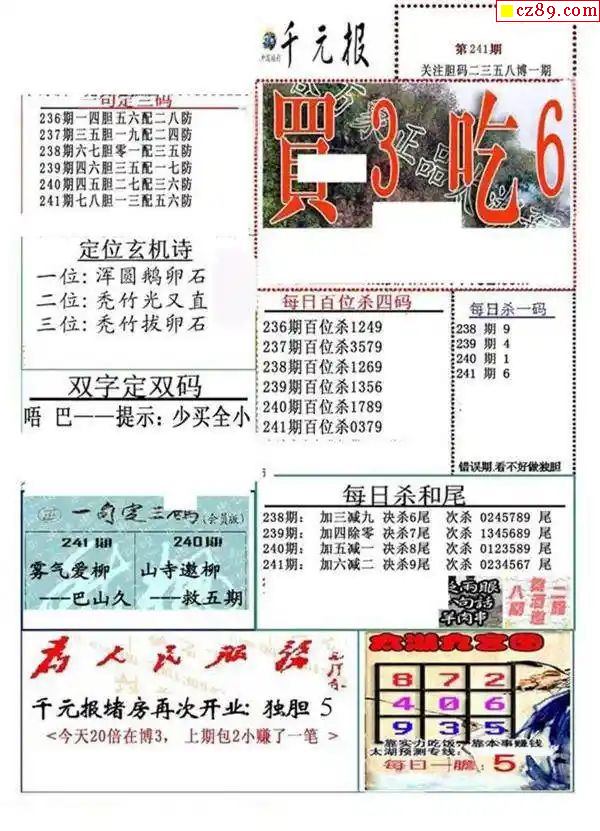 cz89.com
千元报
第241期
关注胆码二三五八博一期
一句定三码
236期一四胆五六配二八防
237期三五胆一九配二四防
238期六七胆零一配三五防
239期四六胆三五配一七防
240期四五胆二七配三六防
241期七八胆一三配五六防
買 3 吃 6
定位玄机诗
一位: 浑圆鹅卵石
二位: 秃竹光又直
三位: 秃竹拔卵石
每日百位杀四码
236期百位杀1249
237期百位杀3579
238期百位杀1269
239期百位杀1356
240期百位杀1789
241期百位杀0379
每日杀一码
238 期 9
239 期 4
240 期 1
241 期 6
错误期,看不好做独胆
双字定双码
唔 巴——提示: 少买全小
一句定三码(会员版)
241期 240期
雾气爱柳 山寺遨柳
---巴山久 ---救五期
每日杀和尾
238期: 加三减九 决杀6尾 次杀 0245789 尾
239期: 加四除零 决杀7尾 次杀 1345689 尾
240期: 加五减一 决杀8尾 次杀 0123589 尾
241期: 加六减二 决杀9尾 次杀 0234567 尾
为人民服务
千元报堵房再次开业: 独胆 5
<今天20倍在博3, 上期包2小赚了一笔 >
太湖九宫图
8 7 2
4 0 6
9 3 5
靠实力吃饭, 靠本事赚钱
太湖预测专线:
每日一胆: 5